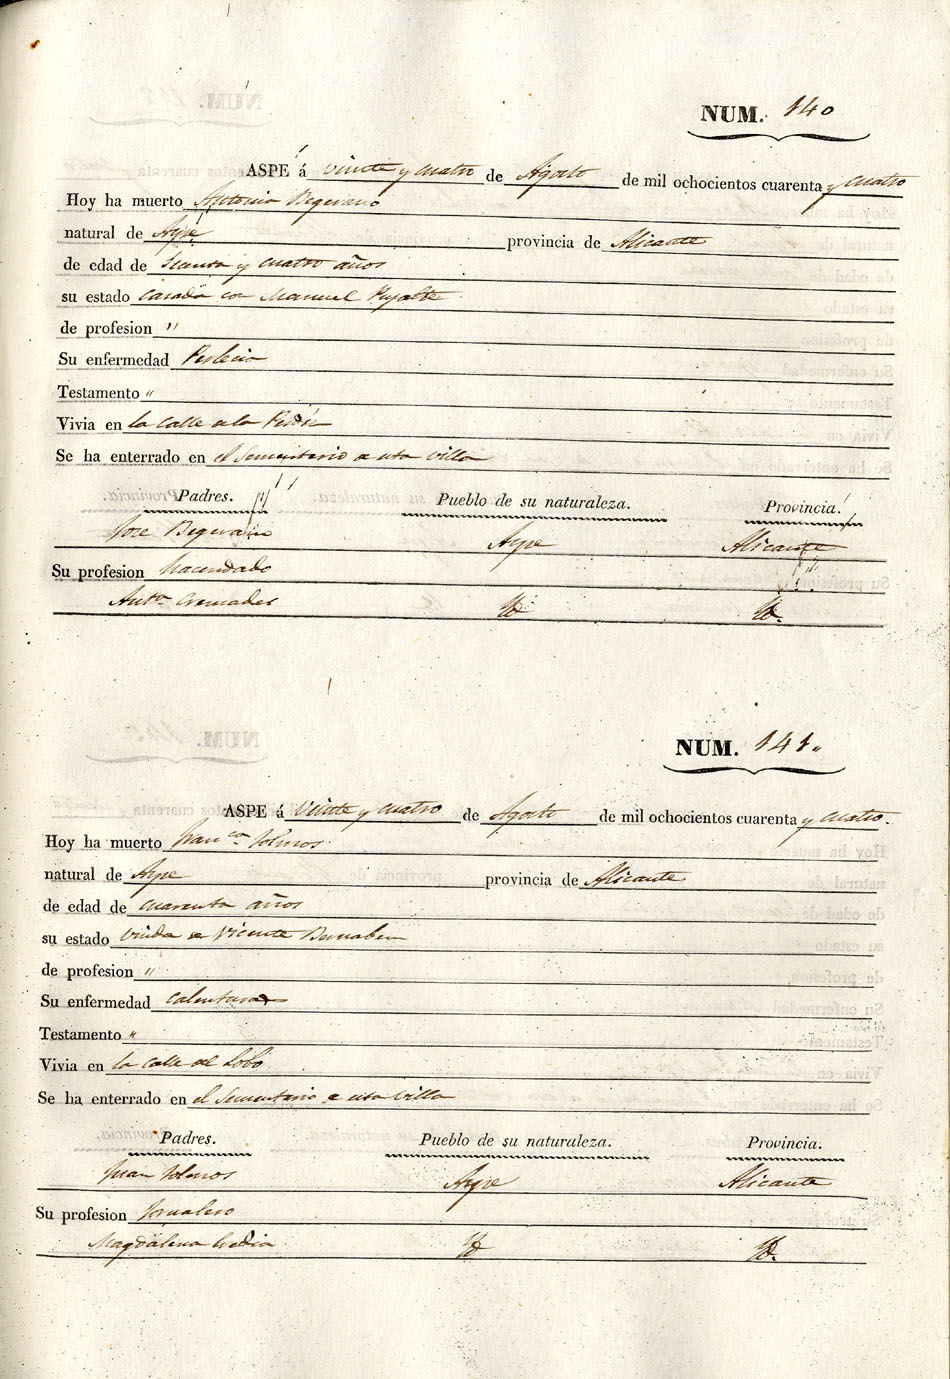 NUM. 140
ASPE á vinte y cuatro de Agosto de mil ochocientos cuarenta y cuatro
Hoy ha muerto Antonia Begerano
natural de Aspe provincia de Alicante
de edad de y cuatro años
su estado casada con Manuel Pujalte
de profesion "
Su enfermedad Perlecia
Testamento "
Vivia en la calle de la
Se ha enterrado en el Sementerio de esta villa
Padres. Pueblo de su naturaleza. Provincia.
Jose Begerano Aspe Alicante
Su profesion hacendado
Antª Cremades Yd Yd.
NUM. 141.
ASPE á Vinte y cuatro de Agosto de mil ochocientos cuarenta y cuatro.
Hoy ha muerto Francca
natural de Aspe provincia de Alicante
de edad de cuarenta años
su estado viuda de Vicente Bernabeu
de profesion "
Su enfermedad calenturas
Testamento "
Vivia en la calle del Lobo
Se ha enterrado en el Sementerio de esta villa
Padres. Pueblo de su naturaleza. Provincia.
Juan Aspe Alicante
Su profesion Jornalero
Magdalena Yd Yd.